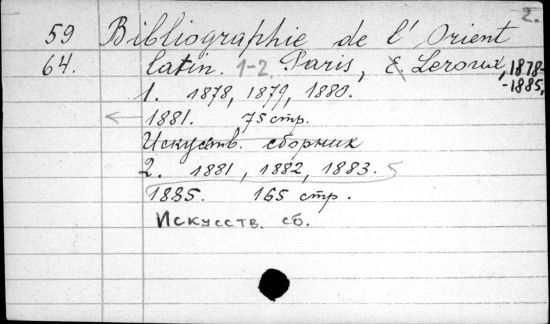 2.
59 Bibliographie de l'Orient
64. latin. 1-2. Paris, E. Leroux, 1878-
-1885.
1. 1878, 1879, 1880.
1881. 75 стр.
Искусств. сборник
2. 1881, 1882, 1883. 5
1885. 165 стр.
Искусств. сб.